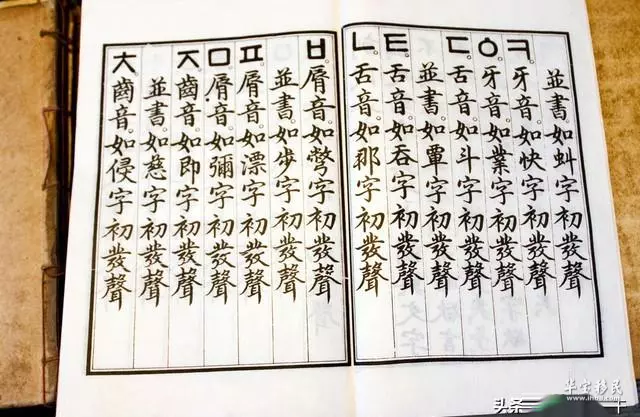 並書。如虯字初發聲
ㅋ。牙音。如快字初發聲
ㆁ。牙音。如業字初發聲
ㄷ。舌音。如斗字初發聲
並書。如覃字初發聲
ㅌ。舌音。如呑字初發聲
ㄴ。舌音。如那字初發聲
ㅂ。脣音。如彆字初發聲
並書。如步字初發聲
ㅍ。脣音。如漂字初發聲
ㅁ。脣音。如彌字初發聲
ㅈ。齒音。如即字初發聲
並書。如慈字初發聲
ㅊ。齒音。如侵字初發聲
华宝移民
头条